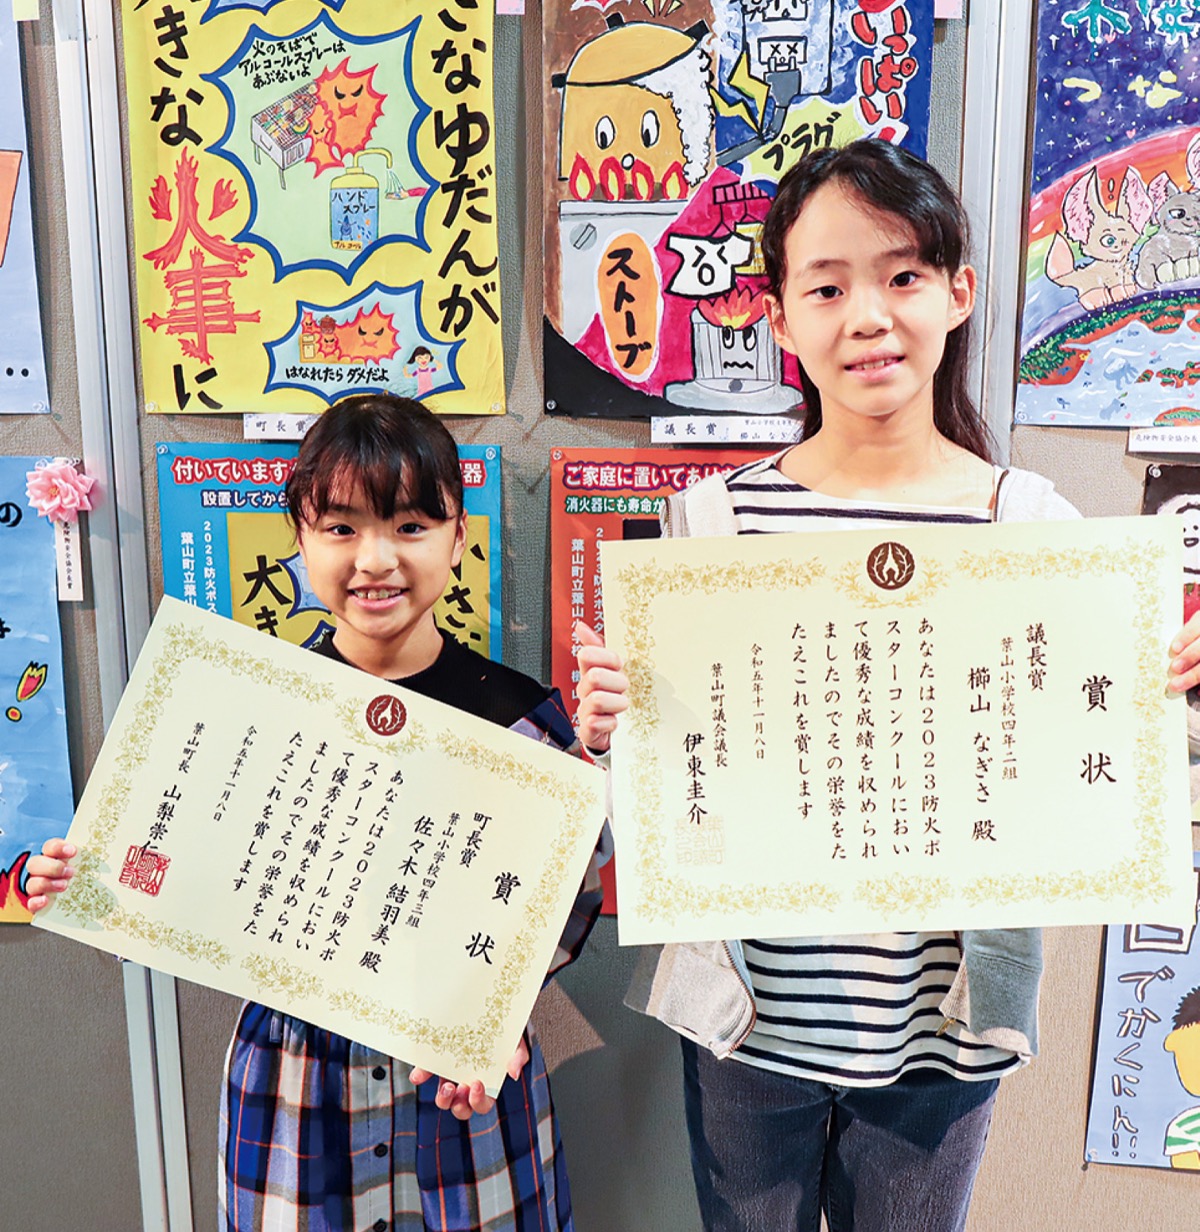 さなゆだんが
きな
火事に
火のそばで
アルコールスプレーは
あぶないよ
ハンド
スプレー
アルコール
はなれたらダメだよ
町長賞
いっぱい!
プラグ
ストーブ
議長賞
葉山小学校
櫛山 なぎさ
つな
危険物安全協会長賞
付いています
器
設置してから
2023防火ポス
葉山町立葉山
大き
小さ
ご家庭に置いてあり
消火器にも寿命が
2023防火ポス
葉山町立葉山小学
の
危険物安全協会長賞
賞状
町長賞
葉山小学校四年三組
佐々木 結羽美 殿
あなたは2023防火ポ
スターコンクールにおい
て優秀な成績を収められ
ましたのでその栄誉をた
たえこれを賞します
令和五年十一月八日
葉山町長 山梨崇仁
賞状
議長賞
葉山小学校四年二組
櫛山 なぎさ 殿
あなたは2023防火ポ
スターコンクールにおい
て優秀な成績を収められ
ましたのでその栄誉をた
たえこれを賞します
令和五年十一月八日
葉山町議会議長
伊東圭介
回
でかくにん!!